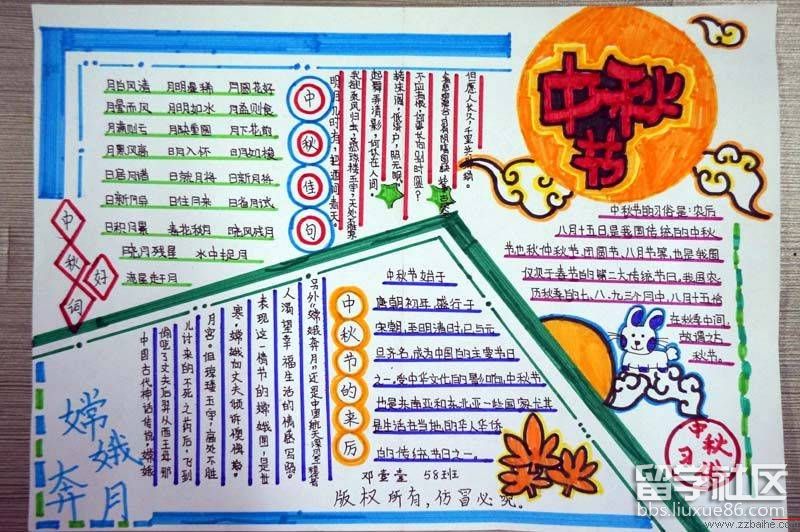 中秋节
中秋好词
月白风清 月明星稀 月圆花好
月晕而风 月明如水 月盈则食
月满则亏 月缺重圆 月下花前
月黑风高 明月入怀 日月如梭
日居月诸 日就月将 日新月异
日往月来 日省月试
日积月累 春花秋月 晓风残月
晓月残星 水中捉月
流星赶月
中秋佳句
明月几时有，把酒问青天。
我欲乘风归去，
起舞弄清影，何似在人间。
转朱阁，低绮户，照无眠。
不应有恨，何事长向别时圆？
但愿人长久，千里共婵娟。
中秋节的习俗是：农历
八月十五日是我国传统的中秋
节也称仲秋节、团圆节、八月节等，也是我国
仅次于春节的第二大传统节日，我国农
历秋季的七、八、九三个月中，八月十五恰
在秋季中间
故谓之
秋节。
中秋节的来历
中秋节始于
唐朝初年，盛行于
宋朝，至明清时已与元
旦齐名，成为中国的主要节日
之一，受中华文化的影响，中秋节
也是东南亚和东北亚一些国家尤其
是生活在当地的华人华侨
的传统节日之一。
嫦娥奔月
中国古代神话传说，嫦娥
偷吃了丈夫后羿从西王母那
儿讨来的不死之药后，飞到
月宫。但琼楼玉宇，高处不胜
寒，嫦娥向丈夫倾诉懊悔。
表现这一情节的嫦娥图，是世
人渴望幸福生活的情感写照。
中秋习俗
邓莹莹 58班
版权所有，仿冒必究。
留学社区
bbs.liuxue86.com
www.zzbaihe.com